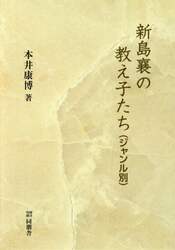 新島襄の
教え子たち(ジャンル別)
本井康博 著
同朋舎